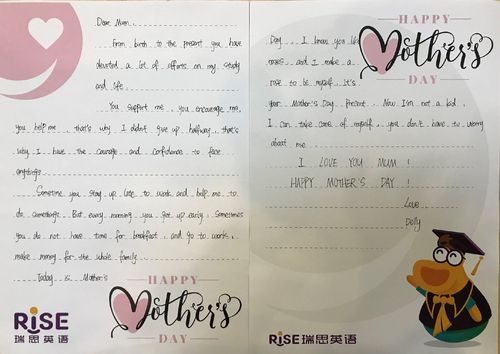 Dear Mum,
From birth to the present you have
devoted a lot of efforts on my study
and life.
You support me, you encourage me,
you help me, that's why I didn't give up halfway, that's
why I have the courage and confidence to face
anythings.
Sometime you stay up late to work and help me to
do somethings. But every morning you get up early, Sometimes
you do not have time for breakfast, and go to work,
make money for the whole family.
Today is Mother's
HAPPY
Mother's
DAY
RiSE
瑞思英语
HAPPY
Mother's
DAY
Day. I know you like
roses, and I make a
rose to be myself. It's
your Mother's Day present. Now I'm not a kid.
I can take care of myself, you don't have to worry
about me.
I LOVE YOU MUM !
HAPPY MOTHER'S DAY !
Love
Dolly
RiSE瑞思英语